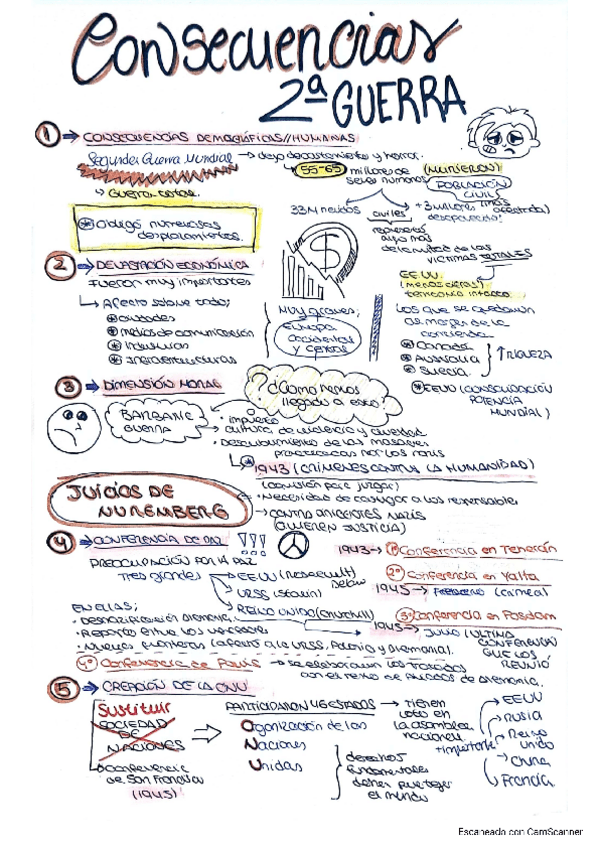 Consecuencias
2ª GUERRA
1 → CONSECUENCIAS DEMOGRÁFICAS//HUMANAS
Segunda Guerra Mundial → dejo devastamiento y horror.
→ Guerra total.
55-65 millones de seres humanos (NUMEROS)
POBLACIÓN CIVIL (más afectada)
* Obligó numerosos desplazamientos.
33M heridos
civiles
+3 millones desaparecidos
represento algo más
de la mitad de las
victimas totales
2 → DEVASTACIÓN ECONÓMICA
Fueron muy importantes
↳ Afecto sobre todo;
* ciudades
* medios de comunicación
* Industrias
* Infraestructuras
MUY graves;
Europa
occidental
y central
EEUU
(menos daños)
territorio intacto.
Los que se quedaron
al margen de la
contienda
* Canadá
* Australia
* Suecia
↑ RIQUEZA
* EEUU (CONSOLIDACIÓN
POTENCIA
MUNDIAL)
3 → DIMENSIÓN MORAL
¿Cómo hemos
llegado a esto?
BARBARIE
GUERRA
· impacto
· cultura de violencia y
· Descubrimiento de las masacres
practicadas por los nazis
* 1943 (CRÍMENES CONTRA LA HUMANIDAD)
(comisión para juzgar)
JUICIOS DE
NUREMBERG
· Necesidad de castigar a los responsables
→ contra dirigentes NAZIS
(QUIEREN JUSTICIA)
4 → CONFERENCIA DE PAZ !!!
PREOCUPACIÓN POR LA PAZ
Tres grandes
→ EEUU (Roosevelt)
URSS (Stalin)
REINO UNIDO (Churchill)
1943 → 1º Conferencia en Teherán
2º Conferencia en Yalta
1945 → FEBRERO (Crimea)
3º Conferencia en Posdam
1945 → JULIO (ÚLTIMA
CONFERENCIA
QUE LOS
REUNIÓ
EN ELLAS;
· Desnazificación Alemania.
· Reparto entre los vencedores
· Nuevas fronteras (afecto a la URSS, Polonia y Alemania).
4º Conferencia de París → se elaboraron los Tratados
con el resto de aliados de Alemania.
5 → CREACIÓN DE LA ONU
Sustituir
SOCIEDAD
DE
NACIONES
↳ Conferencia
de San Francisco
(1945)
PARTICIPARON 46 ESTADOS
Organización de las
Naciones
Unidas
→ tienen
voto en
la asamblea
nacional
+importante
EEUU
Rusia
Reino
unido
China
Francia
derechos
fundamentales
deben proteger
el mundo
Escaneado con CamScanner